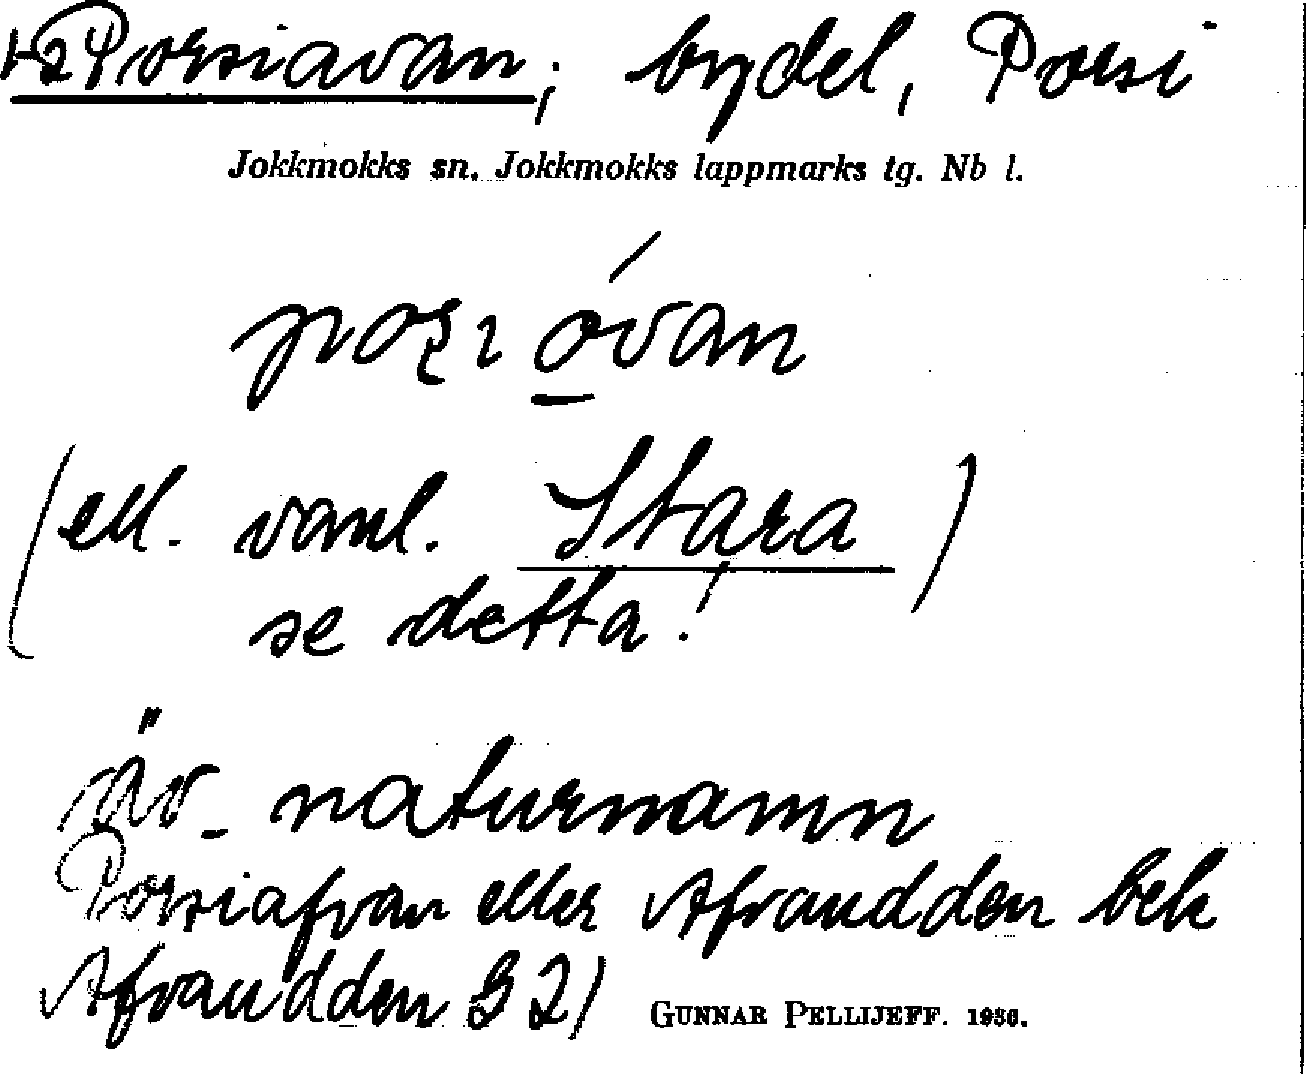 +2 Porsiavan; bydel, Porsi
Jokkmokks sn. Jokkmokks lappmarks tg. Nb l.
(ell. vanl. Stara)
se detta!
äv. naturnamn
Porsiafvan eller Afvaudden bek
Afvaudden B2)
GUNNAR PELLIJEFF. 1936.